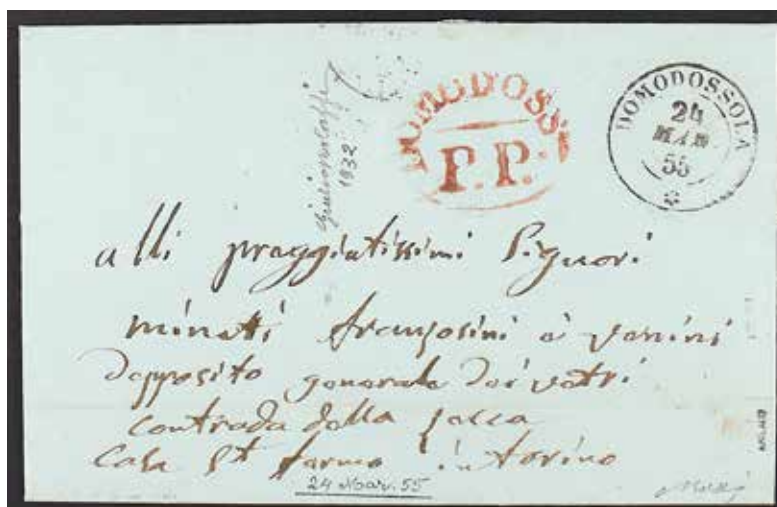 DOMODOSS
P.P.
DOMODOSSOLA
24
MAR
55
1932
alli preggiatissimi Signori
minetti franzosini e vanini
depposito generale dei vetri
contrada della
Casa St in torino
24 Mar. 55